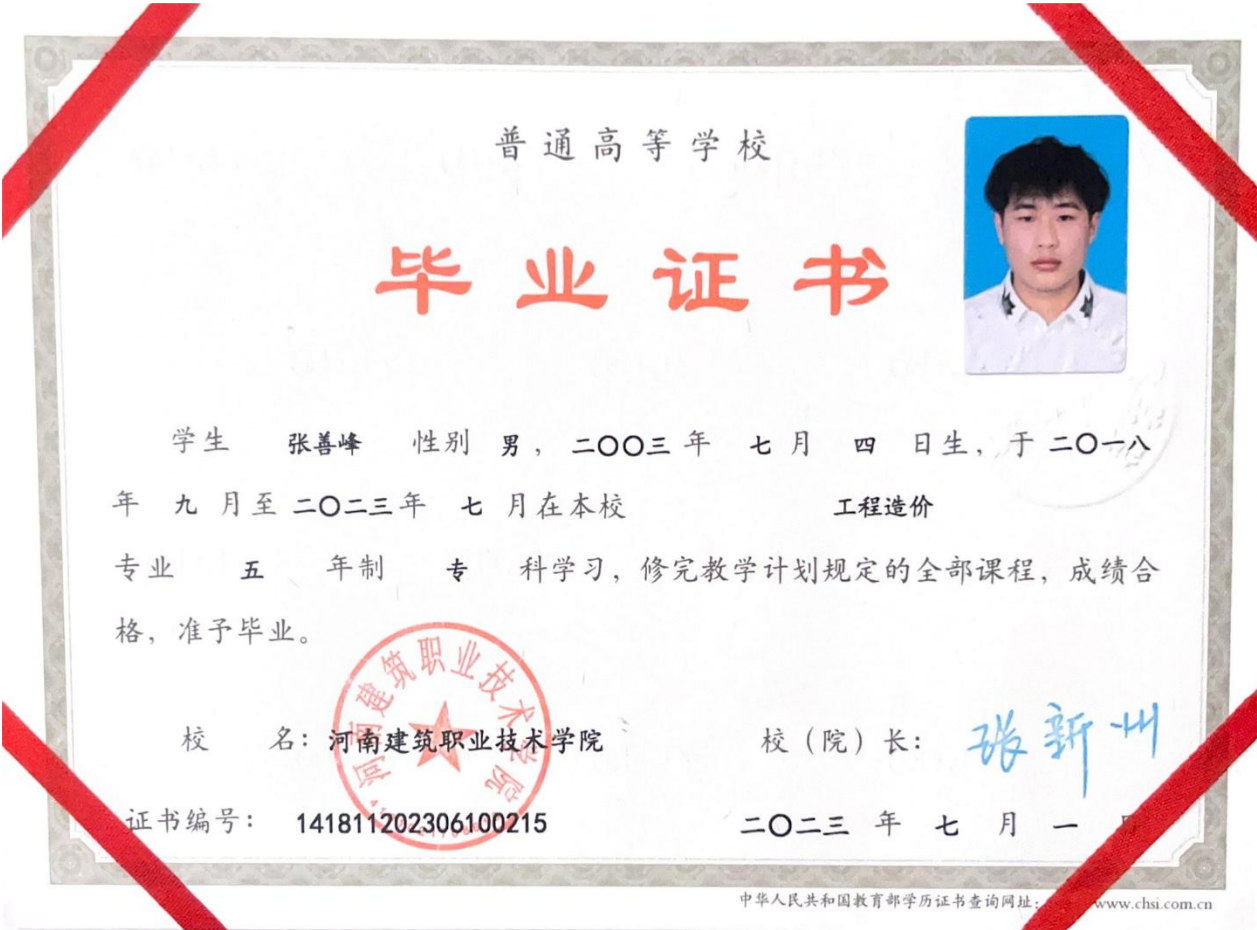 普通高等学校
毕业证书
学生 张善峰 性别 男，二〇〇三 年 七 月 四 日生，于 二〇一八
年 九 月至 二〇二三 年 七 月在本校 工程造价
专业 五 年制 专 科学习，修完教学计划规定的全部课程，成绩合
格，准予毕业。
河南建筑职业技术学院
校 名：河南建筑职业技术学院 校（院）长：张新州
证书编号：141811202306100215 二〇二三 年 七 月 一 日
中华人民共和国教育部学历证书查询网址：www.chsi.com.cn